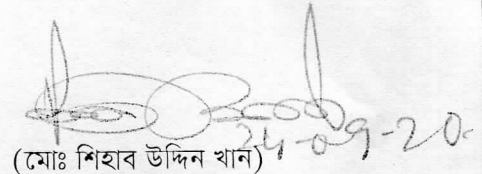 24-09-20
(মোঃ শিহাব উদ্দিন খান)